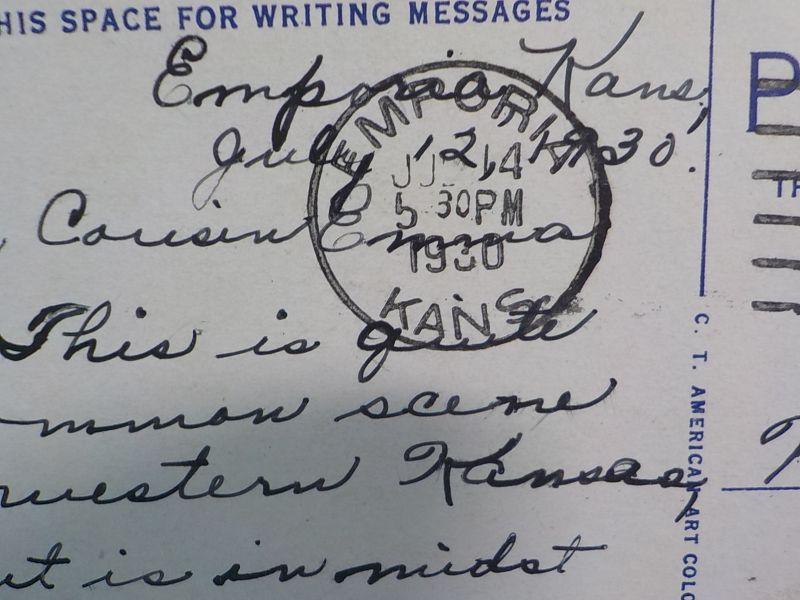 HIS SPACE FOR WRITING MESSAGES
Emporia, Kans,
July 12, 1930.
Cousin Emma
This is quite
ommon scene
western Kansas,
ut is in midst
EMPORIA
JUL 14
5 30PM
1930
KANS
C. T. AMERICAN ART COLO
P
TH